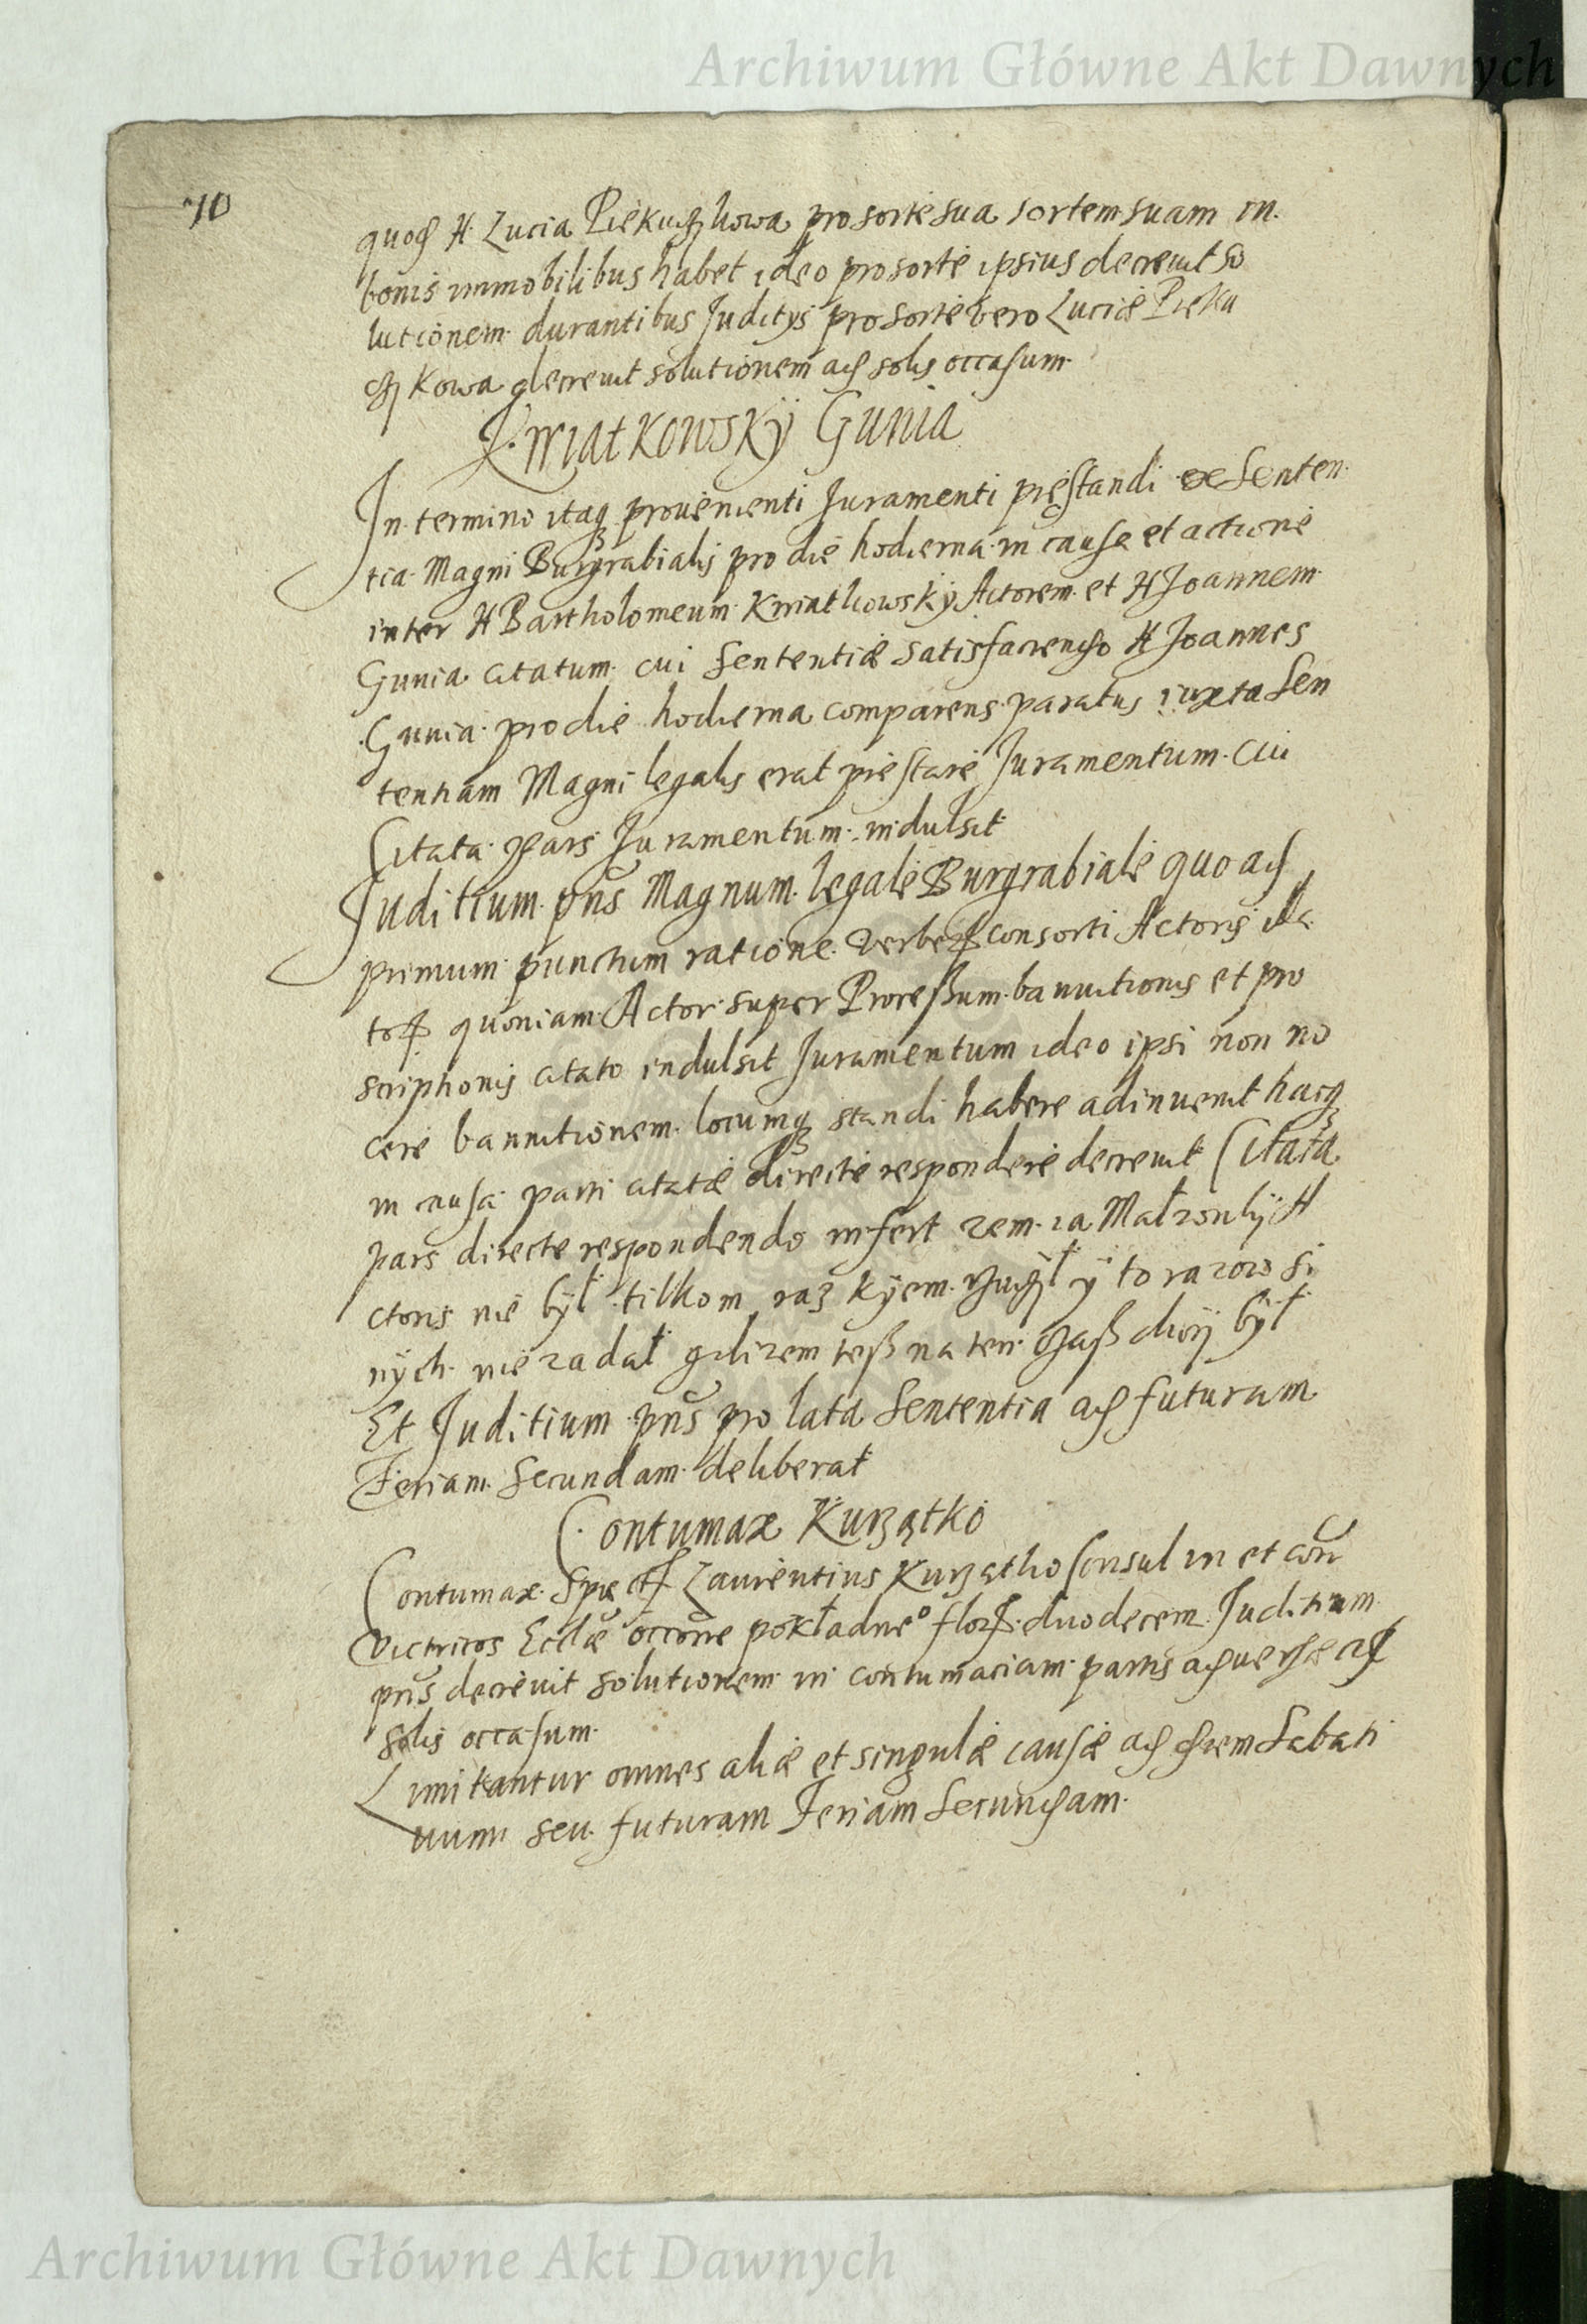 Archiwum Główne Akt Dawnych
70
quod H. Lucia Piekuczkowa pro sorte sua sortem suam in
bonis immobilibus habet ideo pro sorte ipsius decrevit so
lutionem durantibus Juditys pro sorte vero Luciæ Pieku
czkowa decrevit solutionem ad solis occasum.
Kwiatkowskÿ Gunia
In termino itaq provenienti Juramenti præstandi ex Senten
tia Magni Burgrabialis pro die hodierna in causa et actione
inter H Bartholomeum Kwiatkowskÿ Actorem et H Joannem
Gunia citatum cui Sententiæ satisfaciendo H Joannes
Gunia pro die hodierna comparens paratus iuxta Sen
tentiam Magni legalis erat præstare Juramentum. Cui
Citata pars Juramentum indulsit
Juditium pñs Magnum legale Burgrabiale quo ad
primum punctum ratione verberꝝ consorti Actoris illa
toꝝ quoniam Actor super Processum bannitionis et pro
scriptionis citato indulsit Juramentum ideo ipsi non no
cere bannitionem locumq standi habere adinvenit hacq
in causa parti citatæ directe respondere decrevit Citata
pars directe respondendo infert zem ia Małzonkÿ A
ctoris nie bÿł tilkom raz kÿem ÿ to razow si
nÿch nie zadał gdizem tesz na ten czasz chorÿ bÿł
Et Juditium pñs pro lata Sententia ad futuram
Feriam Secundam deliberat
Contumax Kurzątko
Contumax Spectꝝ Laurentius Kurzątko Consul in et con
Victricos Eccliæ occõne pokładneo floꝝ duodecem Juditium
pñs decrevit solutionem in contumaciam partis adversæ ad
solis occasum.
Limitantur omnes aliæ et singulæ causæ ad diem Sabati
vum seu futuram Feriam Secundam.
Archiwum Główne Akt Dawnych